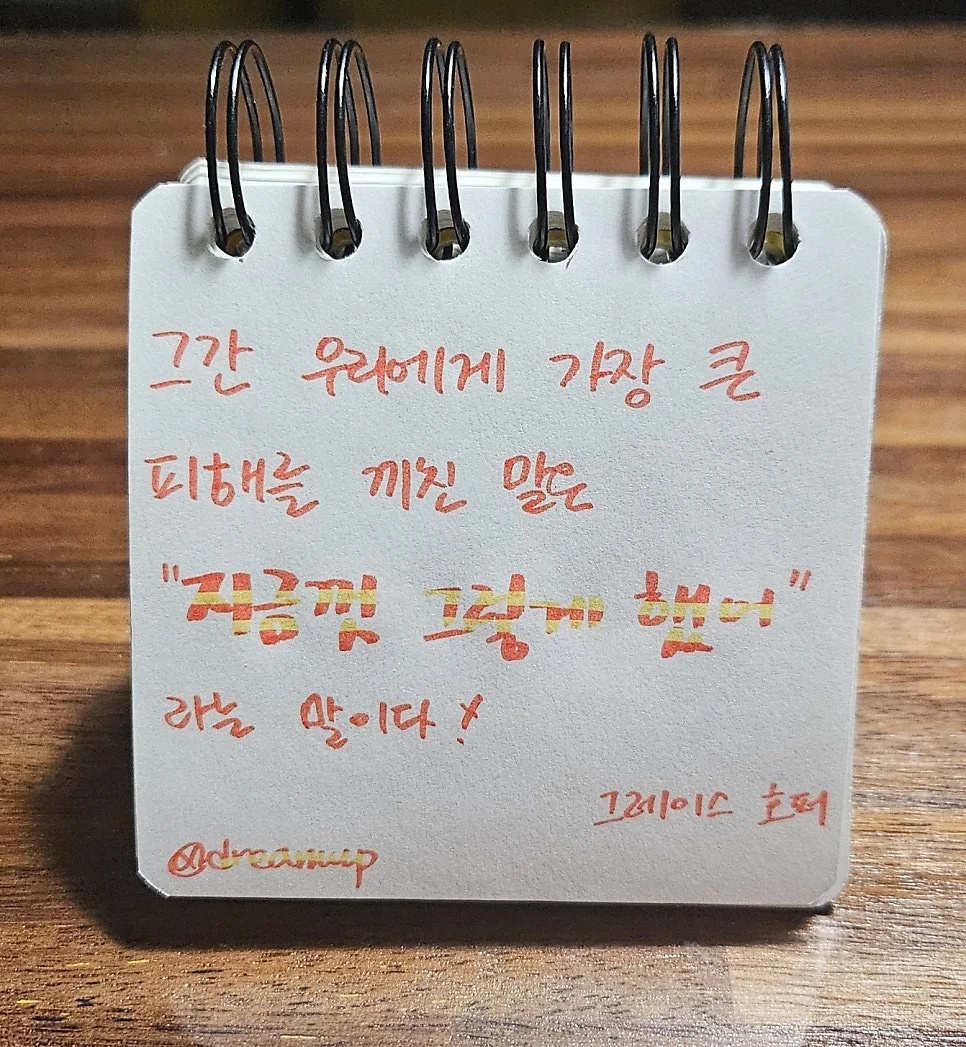 그간 우리에게 가장 큰
피해를 끼친 말은
"지금껏 그렇게 했어"
라는 말이다!
그레이스 호퍼
@dreamup